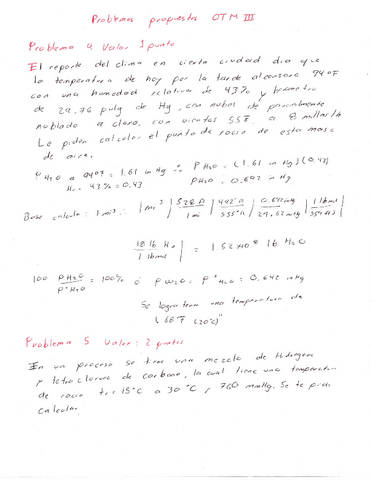 Problemas propuestos OTM III
Problema 4 Valor 1 punto
El reporte del clima en cierta ciudad dio que
la temperatura de hoy por la tarde alcanzara 94°F
con una humedad relativa de 43% y barometro
de 29.76 pulg de Hg, con nubes de parcialmente
nublado a claro, con vientos SSE a 8 millas/h
Le piden calcular el punto de rocio de esta masa
de aire.
P H2O a 94°F = 1.61 in Hg ∴ P H2O = (1.61 in Hg)(0.43)
Hr = 43% = 0.43 P H2O = 0.692 in Hg
Base calculo: 1 mi³ ∴ 1 mi³ | 528 ft / 1 mi | 492°R / 555°R | 0.692 inHg / 29.92 inHg | 1 lbmol / 359 ft³
18 lb H2O / 1 lbmol = 1.52x10⁸ lb H2O
100 P H2O / P* H2O = 100% ó P H2O = P* H2O = 0.642 inHg
Se logra tener una temperatura de
68°F (20°C)
Problema 5 Valor: 2 puntos
En un proceso se tiene una mezcla de Hidrogeno
y tetracloruro de carbono, la cual tiene una temperatura
de rocio tr = 15°C a 30°C y 760 mmHg. Se te pide
calcular